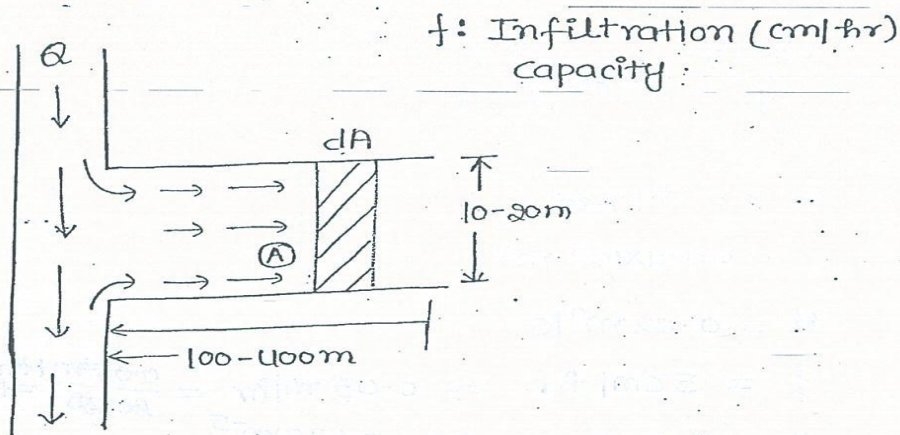 f: Infiltration (cm/hr)
Capacity:
Q
dA
10-20m
A
100-400m